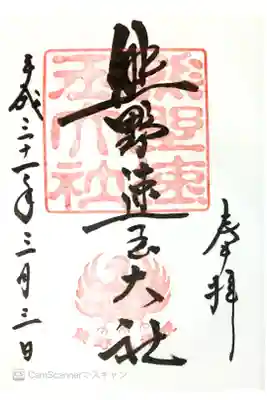 奉拝
熊野速玉大社
平成三十一年三月三日
熊野速玉大社
CamScannerでスキャン